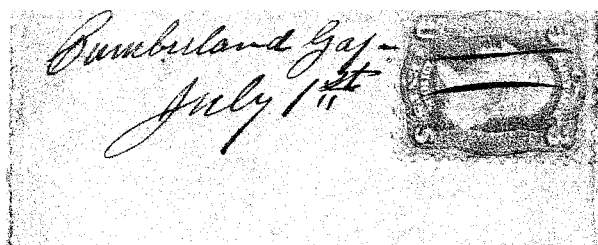 Cumberland Gap-
July 1st